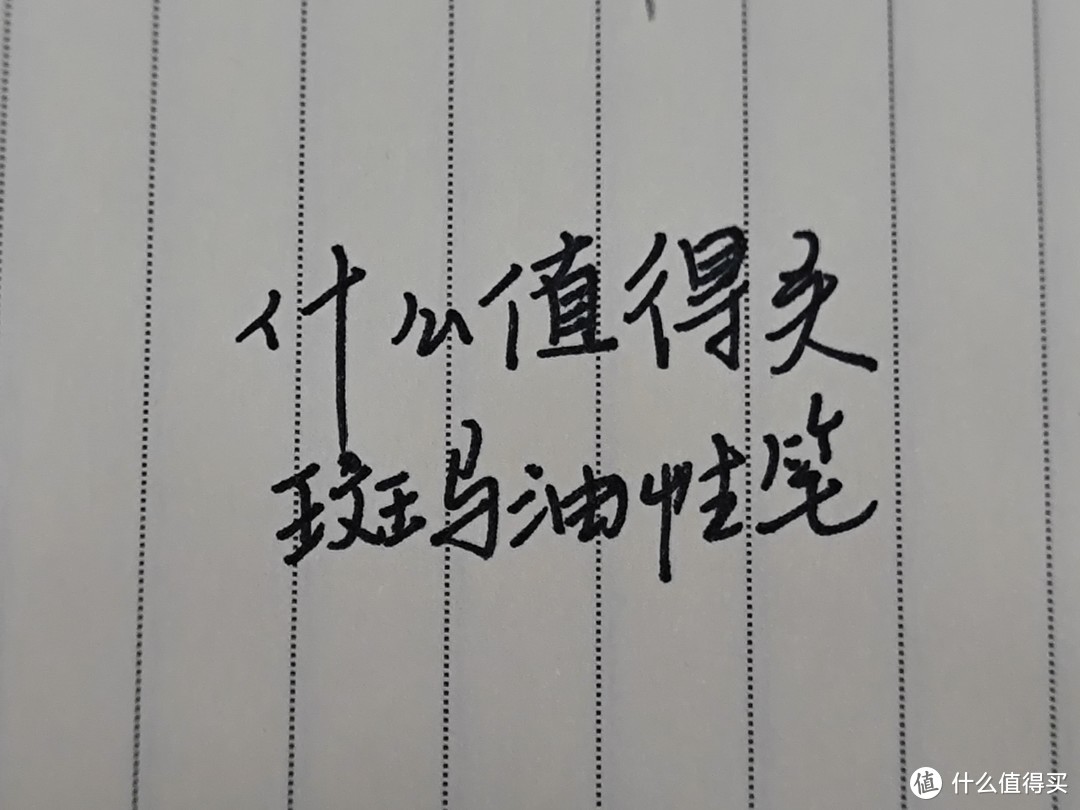 什么值得买
斑马油性笔
值 什么值得买